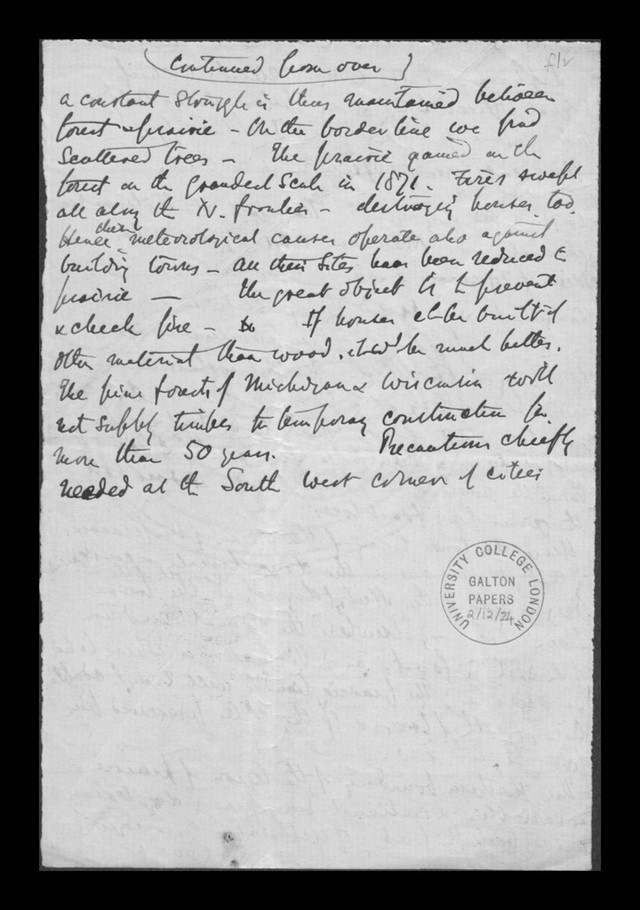 (Continued from over)
f1v
a constant struggle is thus maintained between
forest & prairie – On the border line we find
scattered trees – The prairie gained on the
forest on the grandest scale in 1871. Fires swept
all along the N. frontier – destroying houses too.
Hence these meteorological causes operate also against
building towns – all their sites have been reduced to
prairie — The great object is to prevent
& check fire – If houses cld be built of
other material than wood, it wd be much better.
The pine forests of Michigan & Wisconsin will
not supply timber for temporary construction for
more than 50 years. Precautions chiefly
needed at the South west corner of cities
UNIVERSITY COLLEGE LONDON
GALTON
PAPERS
2/12/24